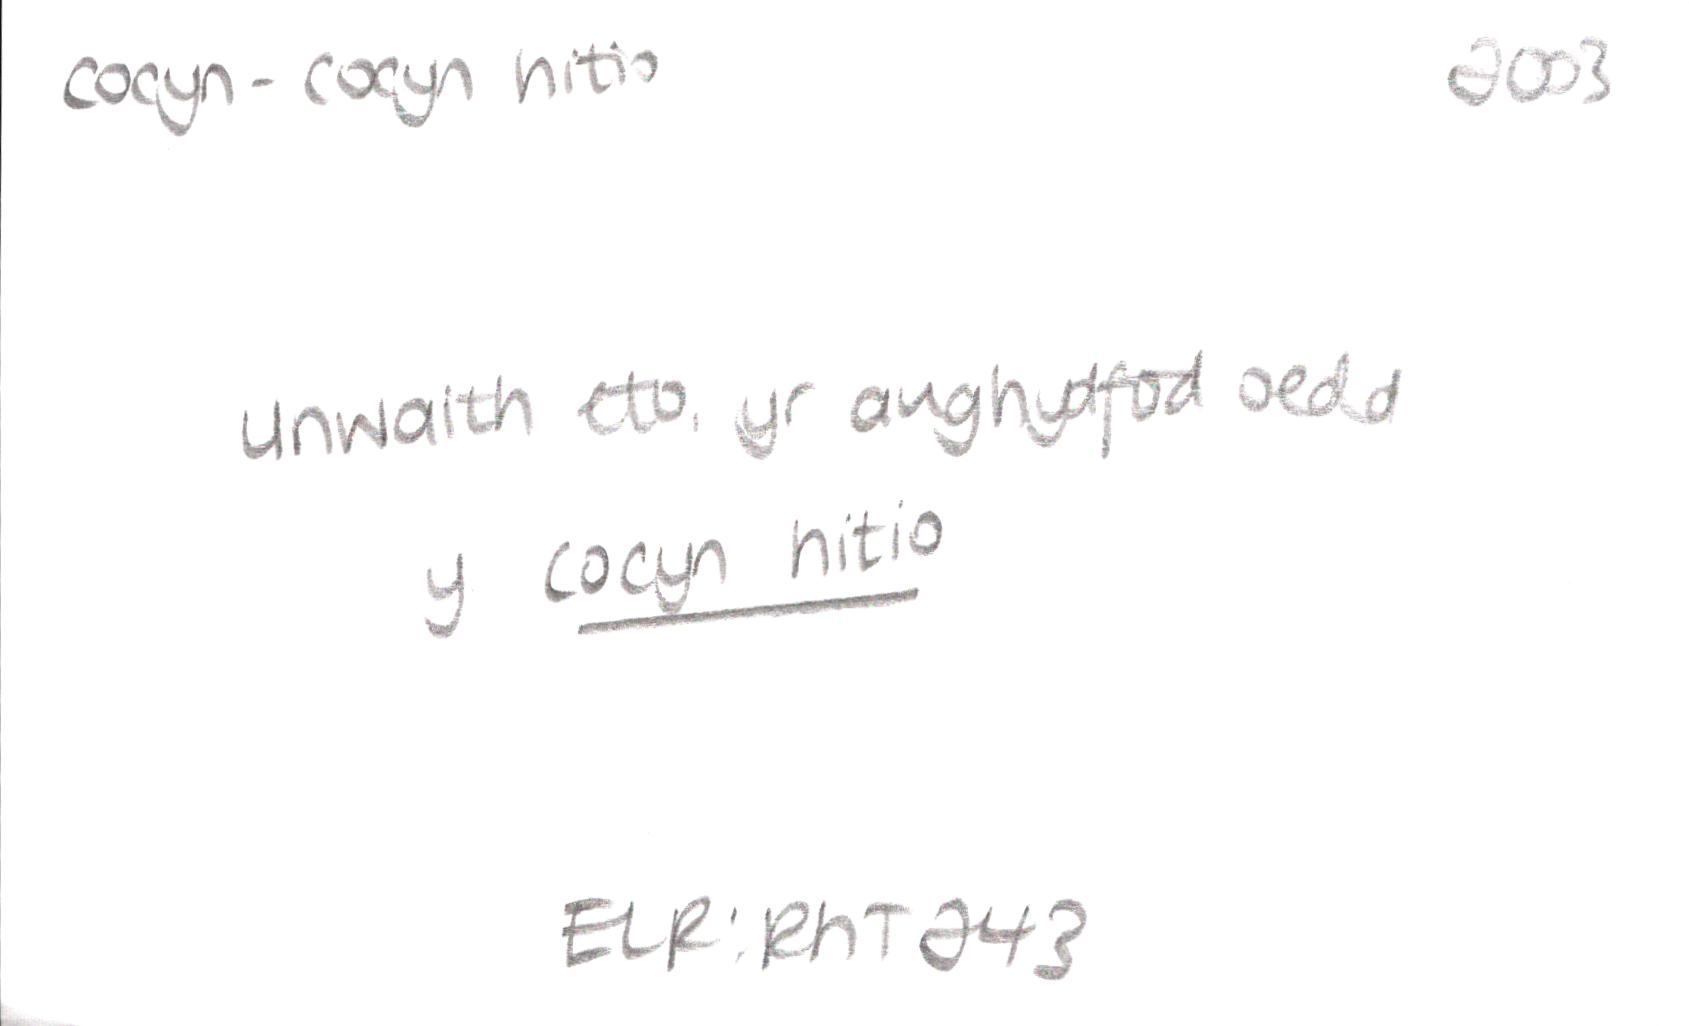 cocyn - cocyn hitio 2003
unwaith eto, yr anghydfod oedd
y cocyn hitio
ELR: RhT 243